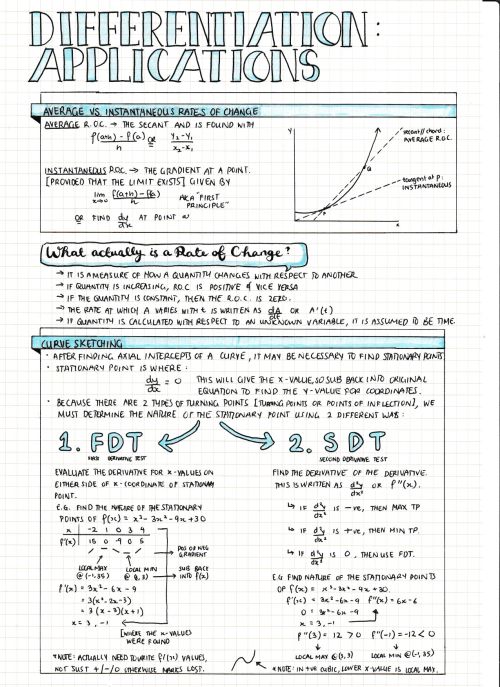 DIFFERENTIATION:
APPLICATIONS
AVERAGE VS. INSTANTANEOUS RATES OF CHANGE
AVERAGE R.O.C. → THE SECANT AND IS FOUND WITH
f(a+h) - f(a) / h OR y₂-y₁ / x₂-x₁
INSTANTANEOUS R.O.C → THE GRADIENT AT A POINT.
[PROVIDED THAT THE LIMIT EXISTS] GIVEN BY
lim x→0 f(a+h) - f(a) / h AKA "FIRST
PRINCIPLE"
OR FIND dy/dx AT POINT a
Y
secant/chord:
AVERAGE R.O.C.
Q
tangent at P:
INSTANTANEOUS
P
x
What actually is a Rate of Change?
→ IT IS A MEASURE OF HOW A QUANTITY CHANGES WITH RESPECT TO ANOTHER
→ IF QUANTITY IS INCREASING, R.O.C IS POSITIVE & VICE VERSA
→ IF THE QUANTITY IS CONSTANT, THEN THE R.O.C. IS ZERO.
→ THE RATE AT WHICH A VARIES WITH t IS WRITTEN AS dA/dt OR A'(t)
→ IF QUANTITY IS CALCULATED WITH RESPECT TO AN UNKNOWN VARIABLE, IT IS ASSUMED TO BE TIME.
CURVE SKETCHING
• AFTER FINDING AXIAL INTERCEPTS OF A CURVE, IT MAY BE NECESSARY TO FIND STATIONARY POINTS
• STATIONARY POINT IS WHERE:
dy/dx = 0 THIS WILL GIVE THE X-VALUE, SO SUB BACK INTO ORIGINAL
EQUATION TO FIND THE Y-VALUE FOR COORDINATES.
• BECAUSE THERE ARE 2 TYPES OF TURNING POINTS [TURNING POINTS OR POINTS OF INFLECTION], WE
MUST DETERMINE THE NATURE OF THE STATIONARY POINT USING 2 DIFFERENT WAS:
1. FDT
FIRST DERIVATIVE TEST
EVALUATE THE DERIVATIVE FOR X-VALUES ON
EITHER SIDE OF X-COORDINATE OF STATIONARY
POINT.
E.G. FIND THE NATURE OF THE STATIONARY
POINTS OF f(x) = x³ - 3x² - 9x + 30
x -2 -1 0 3 4
f'(x) 15 0 -9 0 15
POS OR NEG
GRADIENT
LOCAL MAX LOCAL MIN
@ (-1,35) @ (3,3)
SUB BACK
INTO f(x)
f'(x) = 3x² - 6x - 9
= 3(x² - 2x - 3)
= 3(x-3)(x+1)
x = 3, -1
[WHERE THE X-VALUES
WERE FOUND]
*NOTE: ACTUALLY NEED TO WRITE f'(x) VALUES,
NOT JUST +/-/0 OTHERWISE MARKS LOSS.
2. SDT
SECOND DERIVATIVE TEST
FIND THE DERIVATIVE OF THE DERIVATIVE.
THIS IS WRITTEN AS d²y/dx² OR f"(x).
↳ IF d²y/dx² IS -ve, THEN MAX TP
↳ IF d²y/dx² IS +ve, THEN MIN TP.
↳ IF d²y/dx² IS 0, THEN USE FDT.
E.G FIND NATURE OF THE STATIONARY POINTS
OF f(x) = x³ - 3x² - 9x + 30.
f'(x) = 3x² - 6x - 9 f"(x) = 6x - 6
0 = 3x² - 6x - 9
x = 3, -1
f"(3) = 12 > 0 f"(-1) = -12 < 0
LOCAL MAY @ (3,3) LOCAL MIN @ (-1,35)
*NOTE: IN +ve CUBIC, LOWER X-VALUE IS LOCAL MAX.